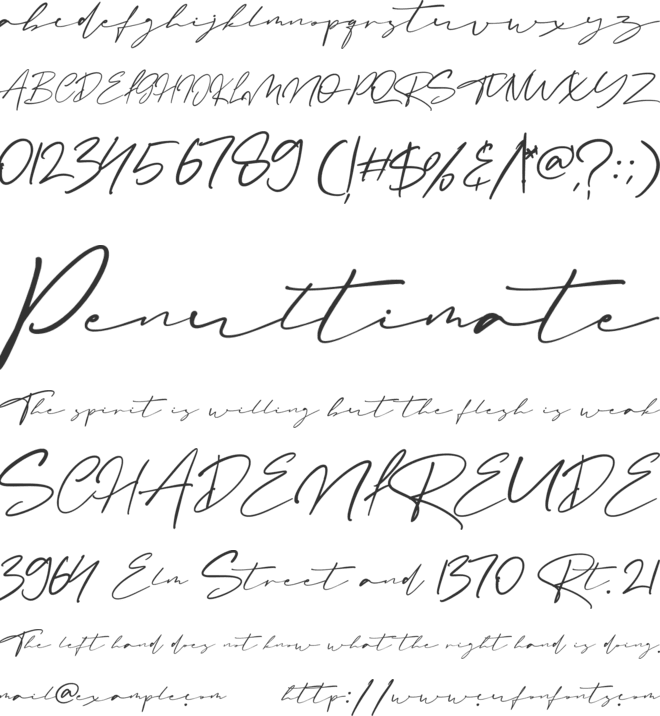 abcdefghijklmnopqrstuvwxyz
ABCDEFGHIJKLMNOPQRSTUVWXYZ
0123456789 (!#$%&/\*@,?:;)
Penultimate
The spirit is willing but the flesh is weak
SCHADENFREUDE
3964 Elm Street and 1370 Rt. 21
The left hand does not know what the right hand is doing.
mail@example.com http://www.cufonfonts.com